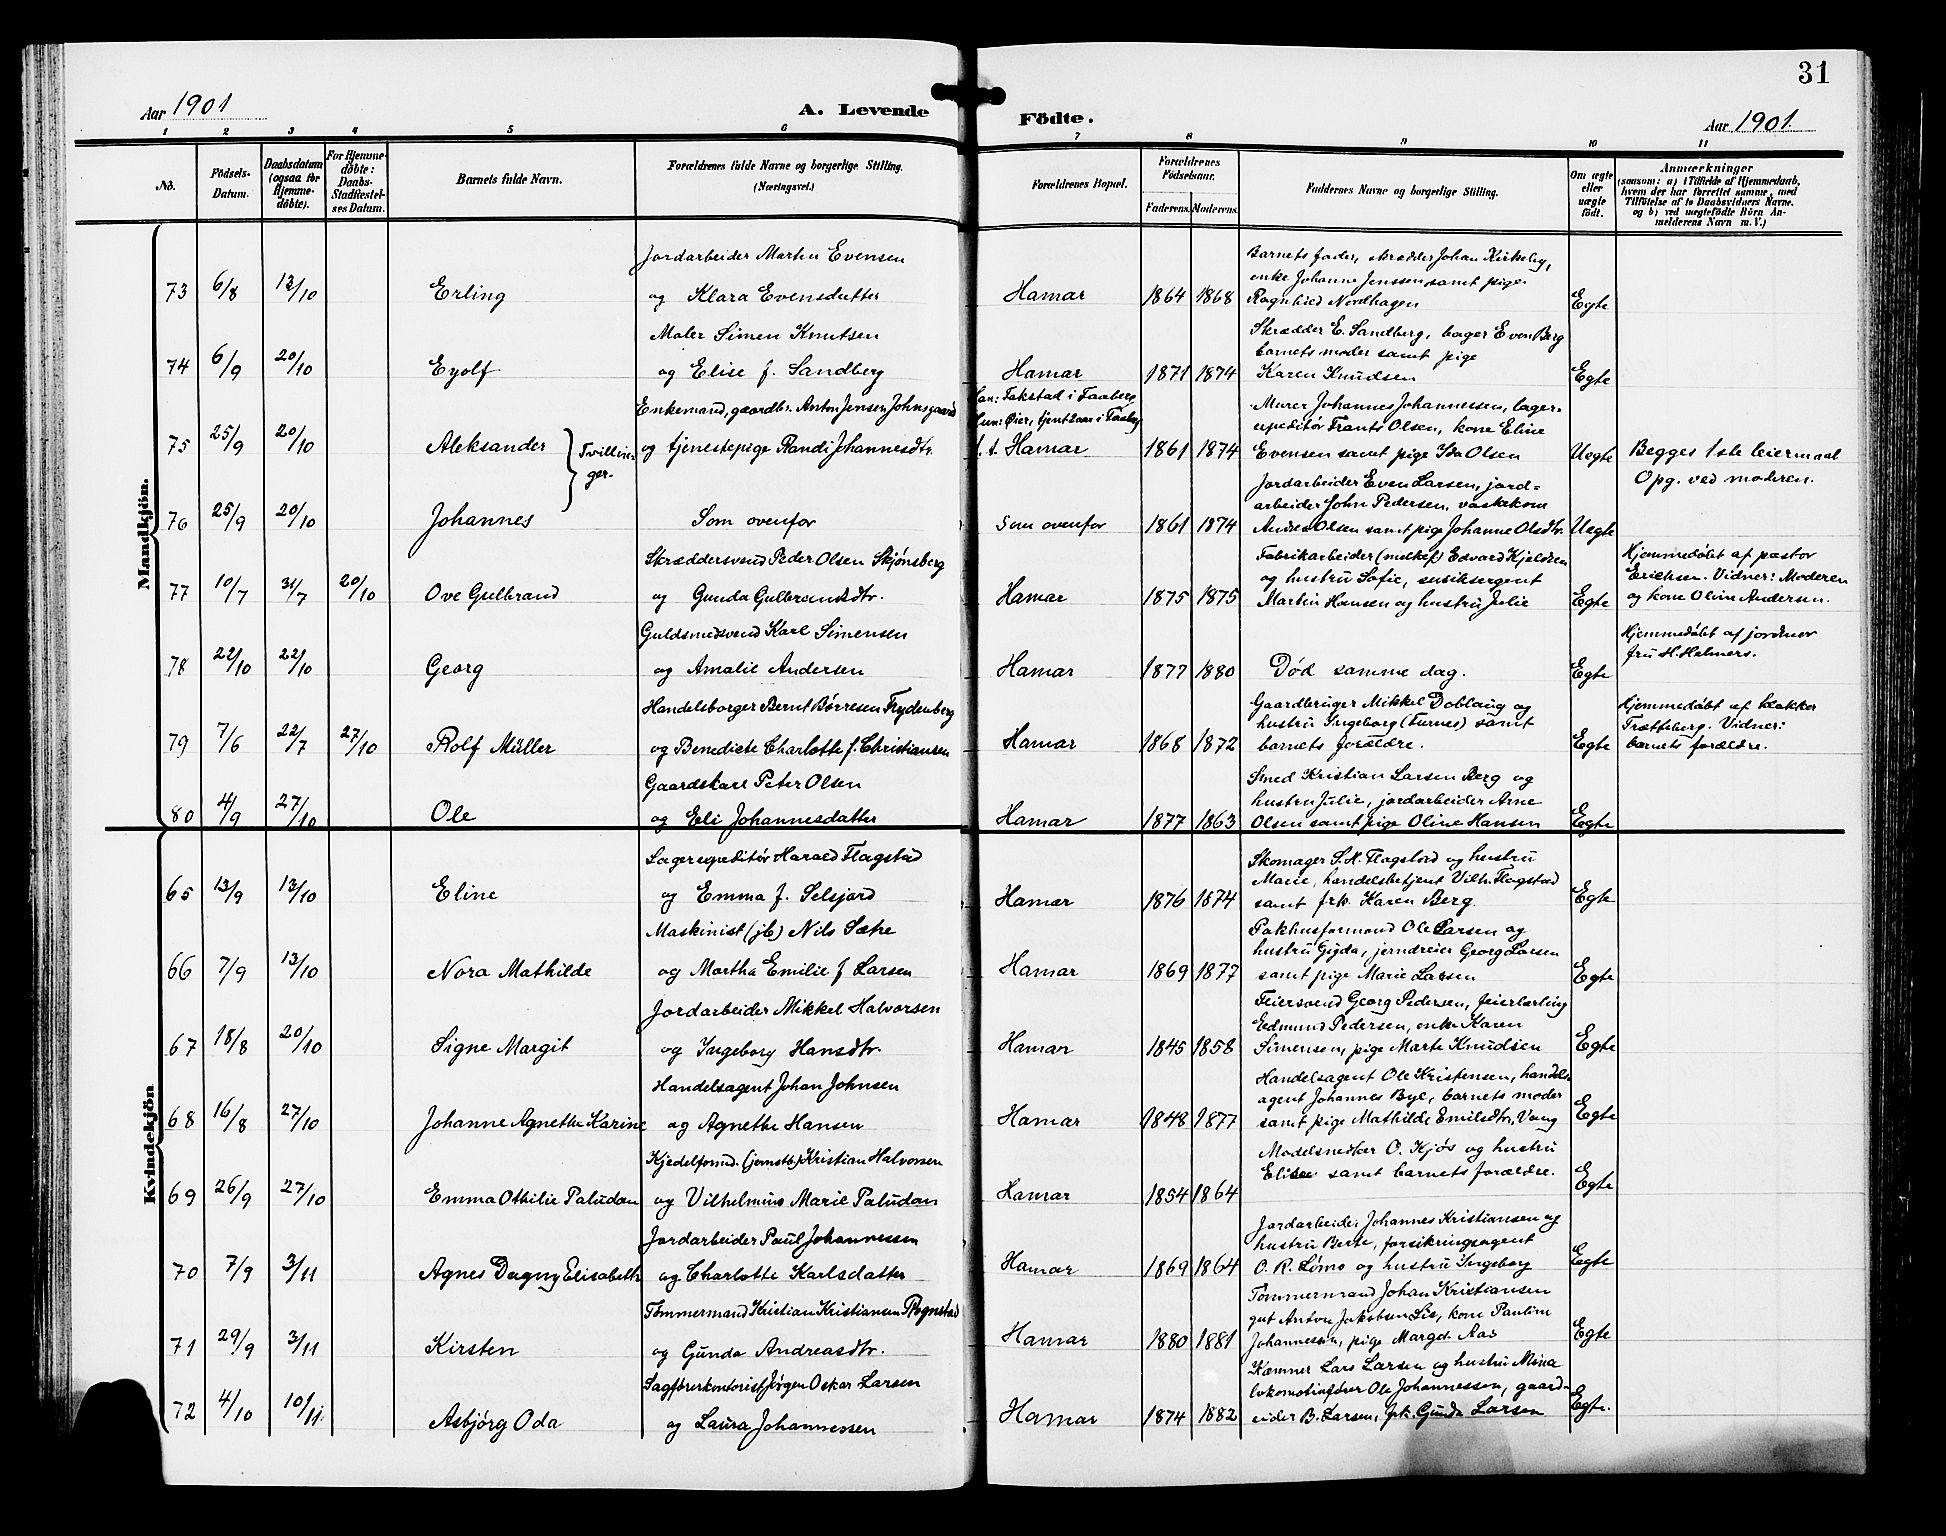 31
Aar 1901
A. Levende Födte.
Aar 1901.
1 2 3 4 5 6 7 8 9 10 11
No.
Födsels-Datum.
Daabsdatum (ogsaa for Hjemme-døbte).
For Hjemme-døbte: Daabs-Stadfæstel-ses Datum.
Barnets fulde Navn.
Forældrenes fulde Navne og borgerlige Stilling. (Næringsvei.)
Forældrenes Bopæl.
Forældrenes Fødselsaar.
Faderens. Moderens.
Faddernes Navne og borgerlige Stilling.
Om ægte eller uægte født.
Anmærkninger
(saasom: a) i Tilfælde af Hjemmedaab,
hvem der har forrettet samme, med
Tilføielse af to Daabsvidners Navne.
og b) ved uægtefødte Börn An-
melderens Navn m. V.)
Mandkjön.
Jordarbeider Martin Evensen
Barnets fader, skrædder Johan Kirkeby,
enke Johanne Jenssen samt pige
73 6/8 13/10 Erling og Klara Evensdatter Hamar 1864 1868 Ragnhild Nordhagen Egte
Maler Simen Knutsen
Skrædder E. Sandberg, bager Even Berg
barnets moder samt pige
74 6/9 20/10 Eyolf og Elise f. Sandberg Hamar 1871 1874 Karen Knudsen Egte
Enkemand, gaardbr. Anton Jensen Johnsgaard
Han: Fakstad i Faaberg
Hun: Øier, tjent 2 aar i Faaberg
Murer Johannes Johannessen, lager-
expeditör Frants Olsen, kone Eline
75 25/9 20/10 Aleksander Tvillin-ger- og tjenestepige Randi Johannesdtr. f. t. Hamar 1861 1874 Evensen samt pige Ida Olsen Uegte Begges 1ste leiermaal
Opg. ved moderen.
Jordarbeider Even Larsen, jord-
arbeider John Pedersen, vaskekone
76 25/9 20/10 Johannes Som ovenfor Som ovenfor 1861 1874 Andrea Olsen samt pige Johanne Olsdtr. Uegte
Skræddersvend Peder Olsen Skjønsberg
Fabrikarbeider (melkef) Edvard Kjeldsen
og hustru Sofie, musiksergent
Hjemmedöbt af pastor
Erichsen. Vidner: Moderen
77 10/7 31/7 20/10 Ove Gulbrand og Gunda Gulbrandsdtr. Hamar 1875 1875 Martin Hansen og hustru Julie Egte og kone Oline Andersen.
Guldsmedsvend Karl Simensen
Hjemmedöbt af jordmor
fru H. Helmers.
78 22/10 22/10 Georg og Amalie Andersen Hamar 1877 1880 Död samme dag. Egte
Handelsborger Bernt Børresen Frydenberg
Gaardbruger Mikkel Doblaug og
hustru Ingeborg (Furnes) samt
Hjemmedöbt af klokker
Trætteberg. Vidner:
79 7/6 22/7 27/10 Rolf Müller og Benedicte Charlotte f. Christiansen Hamar 1868 1872 barnets forældre. Egte barnets forældre.
Gaardskarl Peter Olsen
Smed Kristian Larsen Berg og
hustru Julie, jordarbeider Arne
80 4/9 27/10 Ole og Eli Johannesdatter Hamar 1877 1863 Olsen samt pige Oline Hansen Egte
Kvindekjön
Lagerexpeditör Harald Flagstad
Skomager S. H. Flagstad og hustru
Marie, handelsbetjent Vilh. Flagstad
65 13/9 13/10 Eline og Emma f. Selsjord Hamar 1876 1874 samt frk. Karen Berg. Egte
Maskinist (jb) Nils Sætre
Pakhusformand Ole Larsen og
hustru Gyda, jerndreier Georg Larsen
66 7/9 13/10 Nora Mathilde og Martha Emilie f Larsen Hamar 1869 1877 samt pige Marie Larsen Egte
Jordarbeider Mikkel Halvorsen
Feiersvend Georg Pedersen, feierlærling
Edmund Pedersen, enke Karen
67 18/8 20/10 Signe Margit og Ingeborg Hansdtr. Hamar 1845 1858 Simensen, pige Marte Knudsen Egte
Handelsagent Johan Johnsen
Handelsagent Ole Kristensen, handels-
agent Johannes Bye, barnets moder
68 16/8 27/10 Johanne Agnethe Karine og Agnethe Hansen Hamar 1848 1877 samt pige Mathilde Emilsdtr, Vang Egte
Kjedelformd. (jernstb) Kristian Halvorsen
Modelsnedker O. Kjøs og hustru
Elisee samt barnets forældre.
69 26/9 27/10 Emma Othilie Paludan og Vilhelmine Marie Paludan Hamar 1854 1864 Egte
Jordarbeider Paul Johannessen
Jordarbeider Johannes Kristiansen og
hustru Berte, forsikringsagent
70 7/9 3/11 Agnes Dagny Elisabeth og Charlotte Karlsdatter Hamar 1869 1864 O. R. Limo og hustru Ingeborg Egte
Tömmermand Kristian Kristiansen Rognstad
Tömmermand Johan Kristiansen
gut Anton Jakobsen Lie, kone Pauline
71 29/9 3/11 Kirsten og Gunda Andreasdtr. Hamar 1880 1881 Johannessen, pige Margit Aas Egte
Sagførerkontorist Jørgen Oskar Larsen
Kæmner Lars Larsen og hustru Mina
lokomotivfører Ole Johannessen, gaard-
72 4/10 10/11 Asbjörg Oda og Laura Johannessen Hamar 1874 1882 eider B. Larsen, frk. Gunda Larsen Egte.